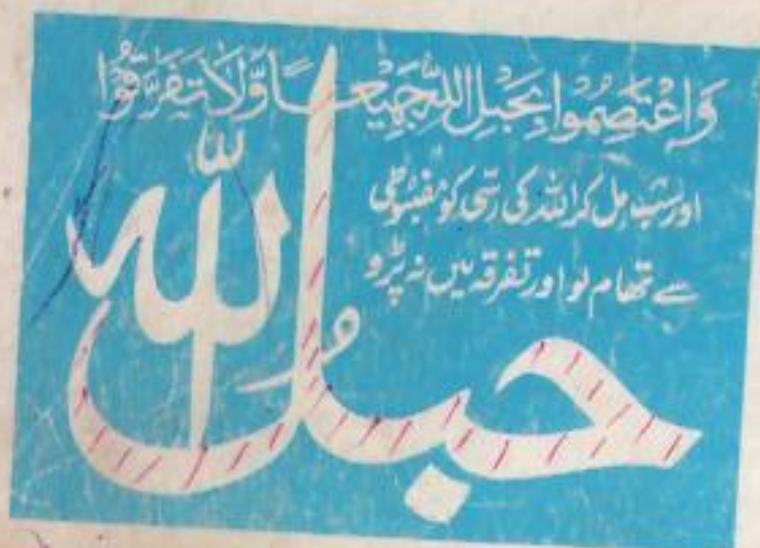 وَاعْتَصِمُوْا بِحَبْلِ اللّٰهِ جَمِيْعًا وَّلَا تَفَرَّقُوْا
اور سب مل کر اللہ کی رسی کو مضبوطی
سے تھام لو اور تفرقہ میں نہ پڑو
حبلُ اللّٰه